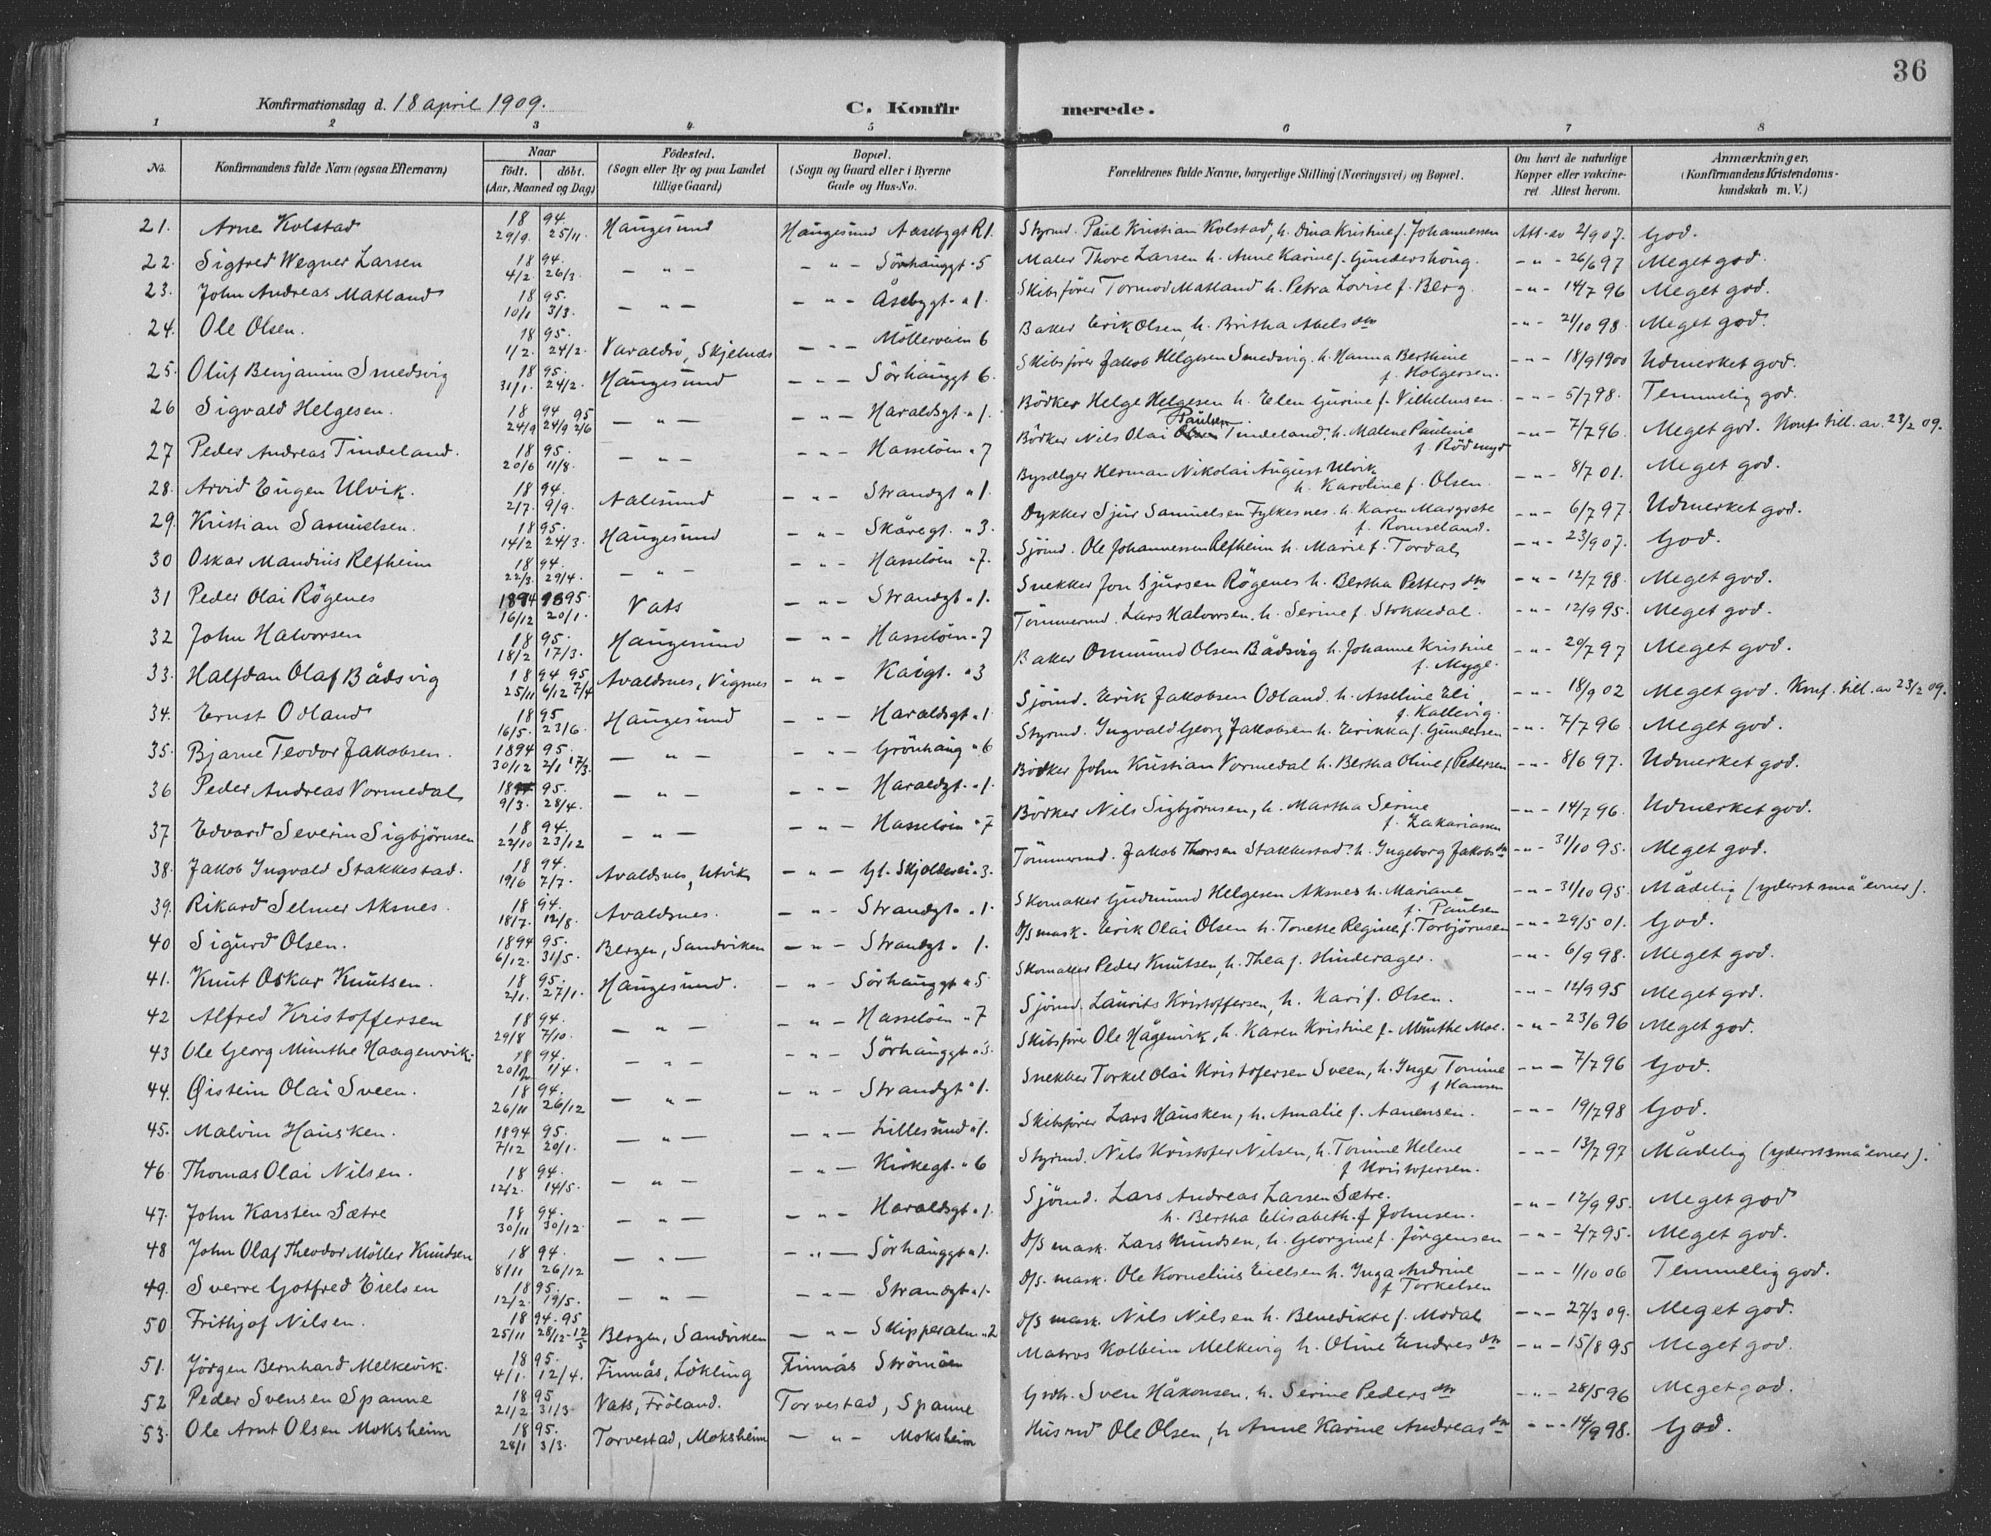 36
Konfirmationsdag d. 18 april 1909.
C. Konfirmerede.
1 2 3 4 5 6 7 8
No. | Konfirmandens fulde Navn (ogsaa Efternavn) | Naar födt. döbt. (Aar, Maaned og Dag) | Födested. (Sogn eller By og paa Landet tillige Gaard) | Bopæl. (Sogn og Gaard eller i Byerne Gade og Hus-No. | Forældrenes fulde Navne, borgerlige Stilling (Næringsvei) og Bopæl. | Om havt de naturlige Kopper eller vakcineret Attest herom. | Anmærkninger. (Konfirmandens Kristendomskundskab m. V.)
21. Arne Kolstad 1894. 29/9. 25/11. Haugesund Haugesund Aasebygt R1. Styrmd. Paul Kristian Kolstad, h. Dina Kristine f. Johannessen Att. av 2/9 07. God.
22. Sigfred Wegner Larsen 1894. 4/2. 26/3. — " — — " — Sörhauggt " 5 Maler Thore Larsen h. Anne Karine f. Gundershoug. — " — 26/6 97 Meget god.
23. John Andreas Matland 1895. 10/1 3/3. — " — — " — Åsebygt. " 1. Skibsförer Tormod Matland h. Petra Lovise f. Berg. — " — 14/7 96 Meget god.
24. Ole Olsen. 1895. 1/2. 24/2. Varaldsö, Skjelnes — " — Möllerveien 6 Baker Erik Olsen, h. Britha Abelsdtr — " — 21/10 98. Meget god.
25. Oluf Benjamin Smedsvig 1895. 31/1. 24/2. Haugesund — " — Sörhauggt 6. Skibsförer Jakob Helgesen Smedsvig. h. Hanna Berthine f. Holgersen. — " — 18/9 1900 Udmerket god.
26 Sigvald Helgesen. 1894 95 24/9 24/9 2/6 — " — — " — Haraldsgt " 1. Bödker Helge Helgesen h. Elen Gurine f. Vilhelmsen. — " — 5/7 98. Temmelig god.
27 Peder Andreas Tindeland. 1895. 20/6 11/8. — " — — " — Hasselöen " 7 Bödker Nils Olai Paulsen Tindeland. h. Malene Pauline f. Rödmyr — " — 7/7 96. Meget god. Konf. till. av. 23/2 09.
28. Arvid Eugen Ulvik. 1894. 2/7. 9/9. Aalesund — " — Strandgt " 1. Bysælger Herman Nikolai August Ulvik h. Karoline f. Olsen. — " — 8/7 01. Meget god.
29. Kristian Samuelsen. 1895. 14/2 24/3. Haugesund — " — Skåregt. " 3. Dykker Sjur Samuelsen Fylkesnes. h. Karen Margrete f. Romseland. — " — 6/7 97. Udmerket god.
30 Oskar Mandius Refheim 1894. 22/3. 29/4. — " — — " — Hasselöen " 7. Sjömd. Ole Johannessen Refheim h. Marie f. Tordal — " — 23/9 07. God.
31 Peder Olai Rögenes 1894 1895. 16/12 20/1. Vats — " — Strandgt. " 1. Snekker Jon Sjursen Rögenes h. Bertha Pettersdtr — " — 12/7 98. Meget god.
32 John Halvorsen 1895. 18/2 17/3. Haugesund — " — Hasselöen " 7 Tömmermd. Lars Halvorsen. h. Serine f. Stokkedal. — " — 12/9 95. Meget god.
33. Halfdan Olaf Bådsvig 1894 95 25/11 6/12 7/4 Avaldsnes, Vignes — " — Kaigt. " 3 Baker Ommund Olsen Bådsvig h. Johanne Kristine f. Myge. — " — 20/7 97 Meget god.
34. Ernst Odland 1895 16/5. 23/6. Haugesund — " — Haraldsgt " 1. Sjömd. Erik Jakobsen Odland. h. Asseline Eli f. Kallevig. — " — 18/9 02 Meget god. Konf. till. av 23/2 09.
35. Bjarne Teodor Jakobsen. 1894 95. 30/12 2/1 17/3. — " — — " — Grönhaug " 6 Styrmd. Ingvald Georg Jakobsen h. Erikka f. Gundersen — " — 7/7 96 Meget god.
36 Peder Andreas Vormedal 1895. 9/3. 28/4. — " — — " — Haraldsgt. " 1. Bödker John Kristian Vormedal h. Bertha Oline f Pedersen — " — 8/6 97. Udmerket god.
37 Edvard Severin Sigbjörnsen 1894. 22/10 23/12 — " — — " — Hasselöen " 7 Bödker Nils Sigbjörnsen, h. Martha Serine f. Zakariassen — " — 14/7 96. Udmerket god.
38. Jakob Ingvald Stakkestad. 1894. 19/6 7/7. Avaldsnes, Utvik — " — Gl. Skjoldevei " 3. Tömmermd. Jakob Thorsen Stakkestad. h. Ingeborg Jakobsdtr — " — 31/10 95. Meget god.
39. Rikard Selmer Aksnes. 1894. 18/7. 12/8. Avaldsnes. — " — Strandgt. " 1. Skomaker Gudmund Helgesen Aksnes h. Mariane f. Paulsen — " — 31/10 95. Mådelig (yderst små evner).
40 Sigurd Olsen. 1894 95. 6/12. 31/5. Bergen, Sandviken — " — Strandgt. " 1. D/S mask. Erik Olai Olsen h. Tonette Regine f. Torbjörnsen — " — 29/5 01. God.
41. Knut Oskar Knutsen. 1895. 2/1. 27/1. Haugesund. — " — Sörhauggt " 5 Skomaker Peder Knutsen, h. Thea f. Hinderager. — " — 6/9 98. Meget god.
42 Alfred Kristoffersen 1894. 29/8 7/10. — " — — " — Hasselöen " 7 Sjömd. Laurits Kristoffersen, h. Kari f. Olsen. — " — 12/9 95 Meget god.
43 Ole Georg Minthe Haagenvik. 1894. 1/4. — " — — " — Sörhauggt " 3. Skibsförer Ole Hågenvik, h. Karen Kristine f. Minthe Moe. — " — 23/6 96 Meget god.
44. Øistein Olai Sveen. 1894. 26/11 26/12 — " — — " — Strandgt " 1. Snekker Torkel Olai Kristofersen Sveen, h. Inger Tomine f Hansen — " — 7/7 96 God.
45. Malvin Hausken. 1894 95. 7/12 20/1. — " — — " — Lillesund " 1. Skibsförer Lars Hausken, h. Amalie f. Aanensen. — " — 19/7 98 God.
46 Thomas Olai Nilsen. 1894. 12/2. 14/5. — " — — " — Kirkegt. " 6 Styrmd. Nils Kristofer Nilsen, h. Tomine Helene f Kristofersen. — " — 13/7 97 Mådelig (yderst små evner).
47. John Karsten Sætre 1894. 30/11 30/12. — " — — " — Haraldsgt " 1. Sjömd. Lars Andreas Larsen Sætre. h. Bertha Elisabeth. f Johnsen. — " — 12/9 95. Meget god
48 John Olaf Theodor Möller Knudsen 1894. 8/11 26/12 — " — — " — Sörhauggt " 1. D/S mask. Lars Knudsen, h. Georgine f. Jörgensen — " — 2/7 95. Meget god.
49. Sverre Gotfred Eielsen 1895. 12/2. 19/5. — " — — " — Strandgt " 1. D/S. mask. Ole Kornelius Eielsen h. Inga Andrine f Torkelsen — " — 1/10 06 Temmelig god.
50 Frithjof Nilsen. 1894.95 25/11 28/12 - 12/5 Bergen, Sandviken — " — Skipperalm. " 2 D/S mask. Nils Nilsen h. Benedikte f. Modal — " — 27/3 09. Meget god.
51. Jörgen Bernhard Melkevik. 1895. 4/1. 12/4. Finnås, Lökling Finnås Strömöen Matros Kolbein Melkevig h. Oline Endresdtr — " — 15/8 95 Meget god.
52 Peder Svensen Spanne 1895 21/2 31/3. Vats, Fröland. Torvestad, Spanne Grdbr. Sven Håkonsen, h. Serine Pedersdtr — " — 28/5 96 Meget god.
53. Ole Arnt Olsen Moksheim 1895. 28/1 3/3. Torvestad, Moksheim — " — Moksheim Husmd Ole Olsen, h Anne Karine Andreasdtr — " — 14/9 98. God.